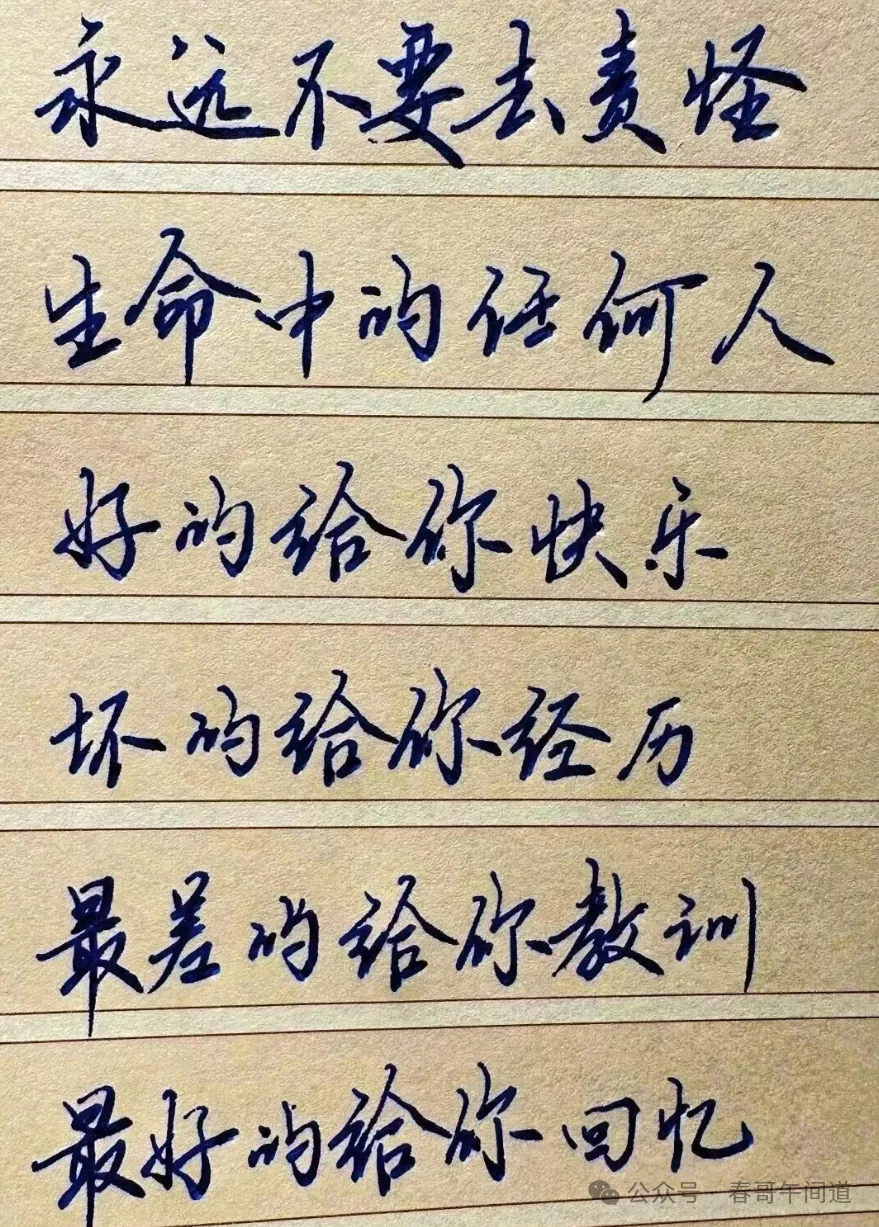 永远不要去责怪
生命中的任何人
好的给你快乐
坏的给你经历
最差的给你教训
最好的给你回忆
公众号 · 春哥午间道